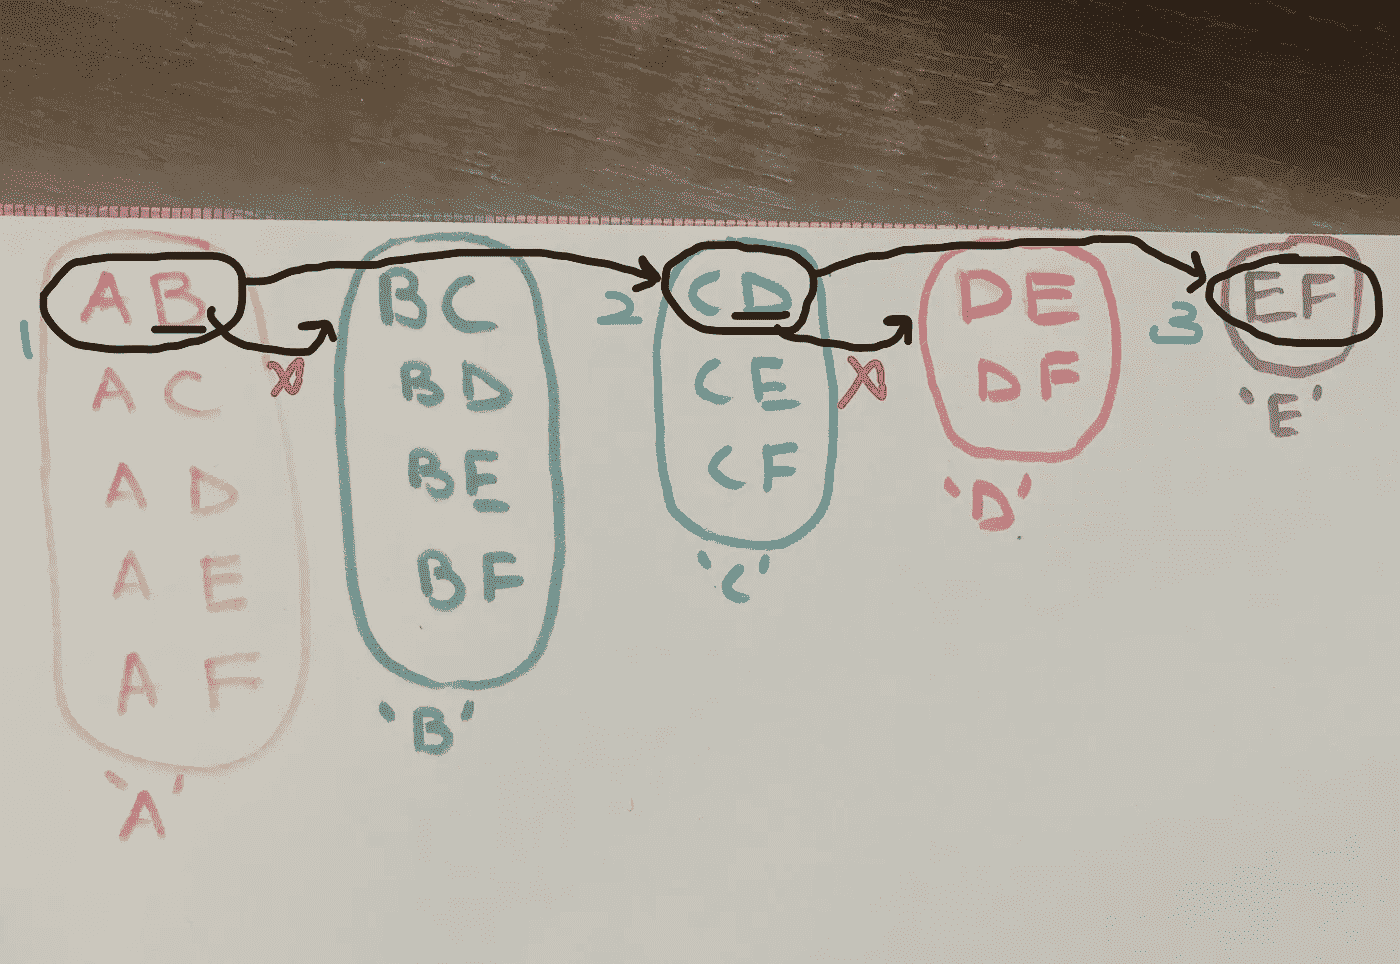 1
AB
AC
AD
AE
AF
'A'
BC
BD
BE
BF
'B'
2
CD
CE
CF
'C'
DE
DF
'D'
3
EF
'E'